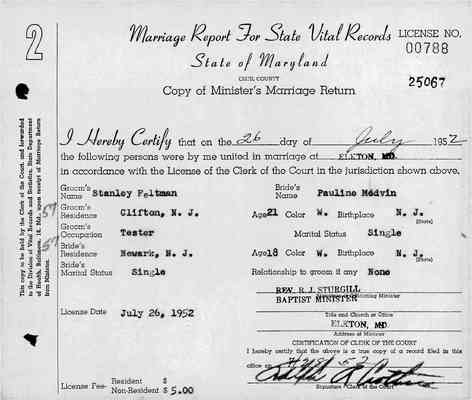 2
Marriage Report For State Vital Records
LICENSE NO.
00788
State of Maryland
CECIL COUNTY
25067
Copy of Minister's Marriage Return
This copy to be held by the Clerk of the Court, and forwarded
to the Division of Vital Records and Statistics, State Department
of Health, Baltimore, 18, Md., upon receipt of Marriage Return
from Minister.
57
57
I Hereby Certify that on the 26 day of July 1952
the following persons were by me united in marriage at ELKTON, MD.
in accordance with the License of the Clerk of the Court in the jurisdiction shown above.
Groom's Name Stanley Feltman Bride's Name Pauline Medvin
Groom's Residence Clifton, N. J. Age 21 Color W. Birthplace N. J.
(State)
Groom's Occupation Tester Marital Status Single
Bride's Residence Newark, N. J. Age 18 Color W. Birthplace N. J.
(State)
Bride's Marital Status Single Relationship to groom if any None
REV. R. J. STURGILL
BAPTIST MINISTER Officiating Minister
License Date July 26, 1952
Title and Church or Office
ELKTON, MD
Address of Minister
CERTIFICATION OF CLERK OF THE COURT
I hereby certify that the above is a true copy of a record filed in this
office on
License Fee- Resident $
Non-Resident $ 5.00
Signature Clerk of the Court